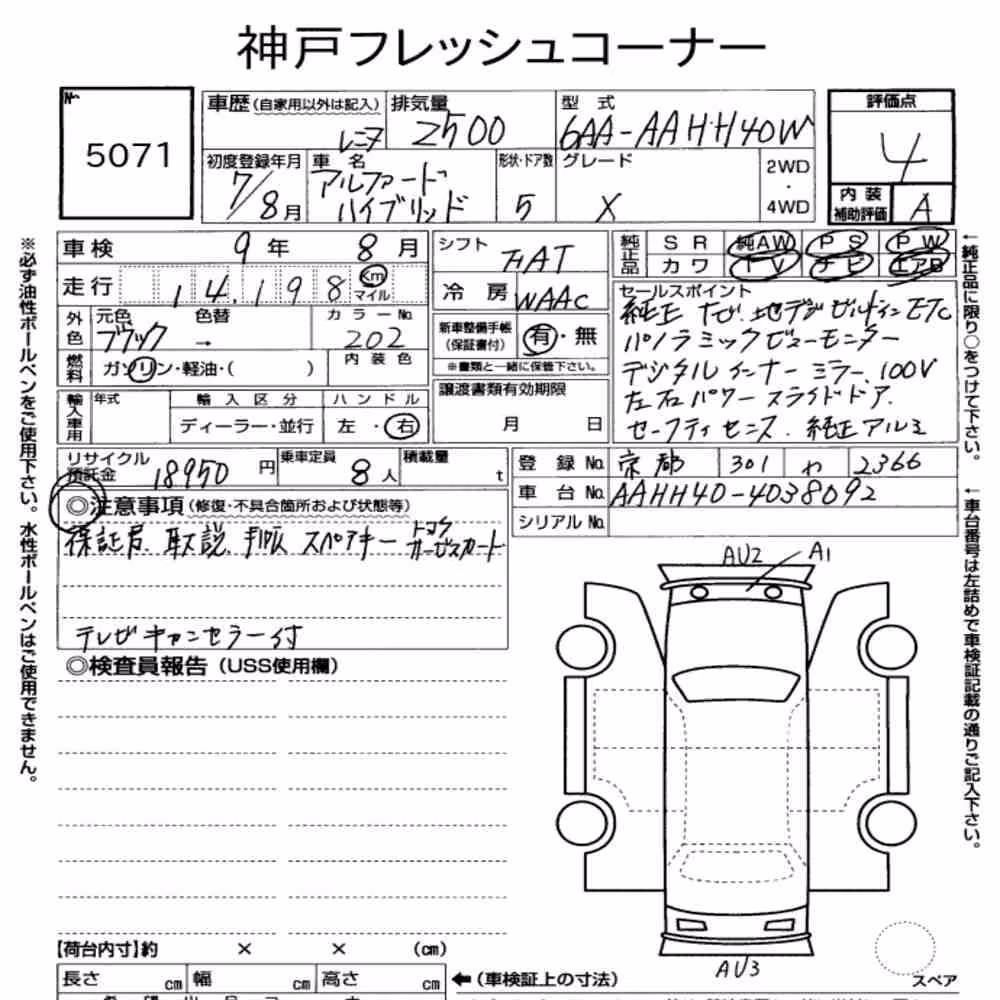 神戸フレッシュコーナー
No. 5071
車歴 (自家用以外は記入) レンタ
排気量 2500
型式 6AA-AAHH40W
評価点 4
初度登録年月 7/8月
車名 アルファード ハイブリッド
形状・ドア数 5
グレード X
2WD
・
4WD
内装
補助評価 A
車検 9年 8月
シフト FAT
純正品 SR 純AW PS PW
カワ TV ナビ エアB
走行 14,198 Km
マイル
冷房 WAAC
外色 元色 ブラック → 色替
カラーNo. 202
新車整備手帳
(保証書付) 有・無
※書類と一緒に保管下さい。
セールスポイント
純正ナビ.地デジ ビルトインETC
パノラミックビューモニター
デジタルインナーミラー.100V
左右パワースライドドア.
セーフティセンス.純正アルミ
燃料 ガソリン・軽油・( )
内装色
譲渡書類有効期限
月 日
輸入車用 年式
輸入区分 ディーラー・並行
ハンドル 左・右
リサイクル
預託金 18950円
乗車定員 8人
積載量 t
登録No. 京都 301 わ 2366
車台No. AAHH40-4038092
シリアルNo.
◎注意事項 (修復・不具合箇所および状態等)
保証書.取説.手帳 スペアキー トヨタ
サービスカード
テレビキャンセラー付
◎検査員報告 (USS使用欄)
AU2 A1
AU3
スペア
【荷台内寸】約 × × (cm)
長さ cm 幅 cm 高さ cm
←(車検証上の寸法)
※必ず油性ボールペンをご使用下さい。水性ボールペンはご使用できません。
←純正品に限り○をつけて下さい。
←車台番号は左詰めで車検証記載の通りご記入下さい。